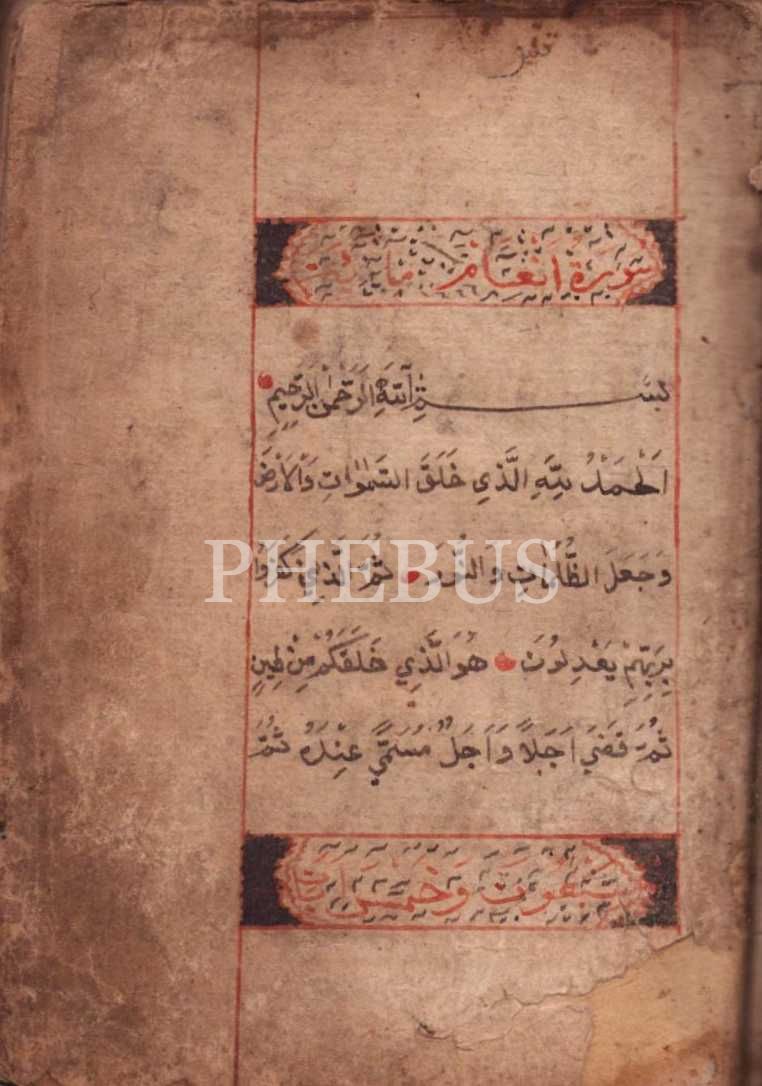 سورة انعام مائة
بِسْمِ اللّٰهِ الرَّحْمٰنِ الرَّحِيمِ
اَلْحَمْدُ لِلّٰهِ الَّذِي خَلَقَ السَّمٰوَاتِ وَالْاَرْضَ
وَجَعَلَ الظُّلُمَاتِ وَالنُّورَ ثُمَّ الَّذِينَ كَفَرُوا
PHEBUS
بِرَبِّهِمْ يَعْدِلُونَ هُوَ الَّذِي خَلَقَكُمْ مِنْ طِينٍ
ثُمَّ قَضَى اَجَلًا وَاَجَلٌ مُسَمًّى عِنْدَهُ ثُمَّ
وخمس